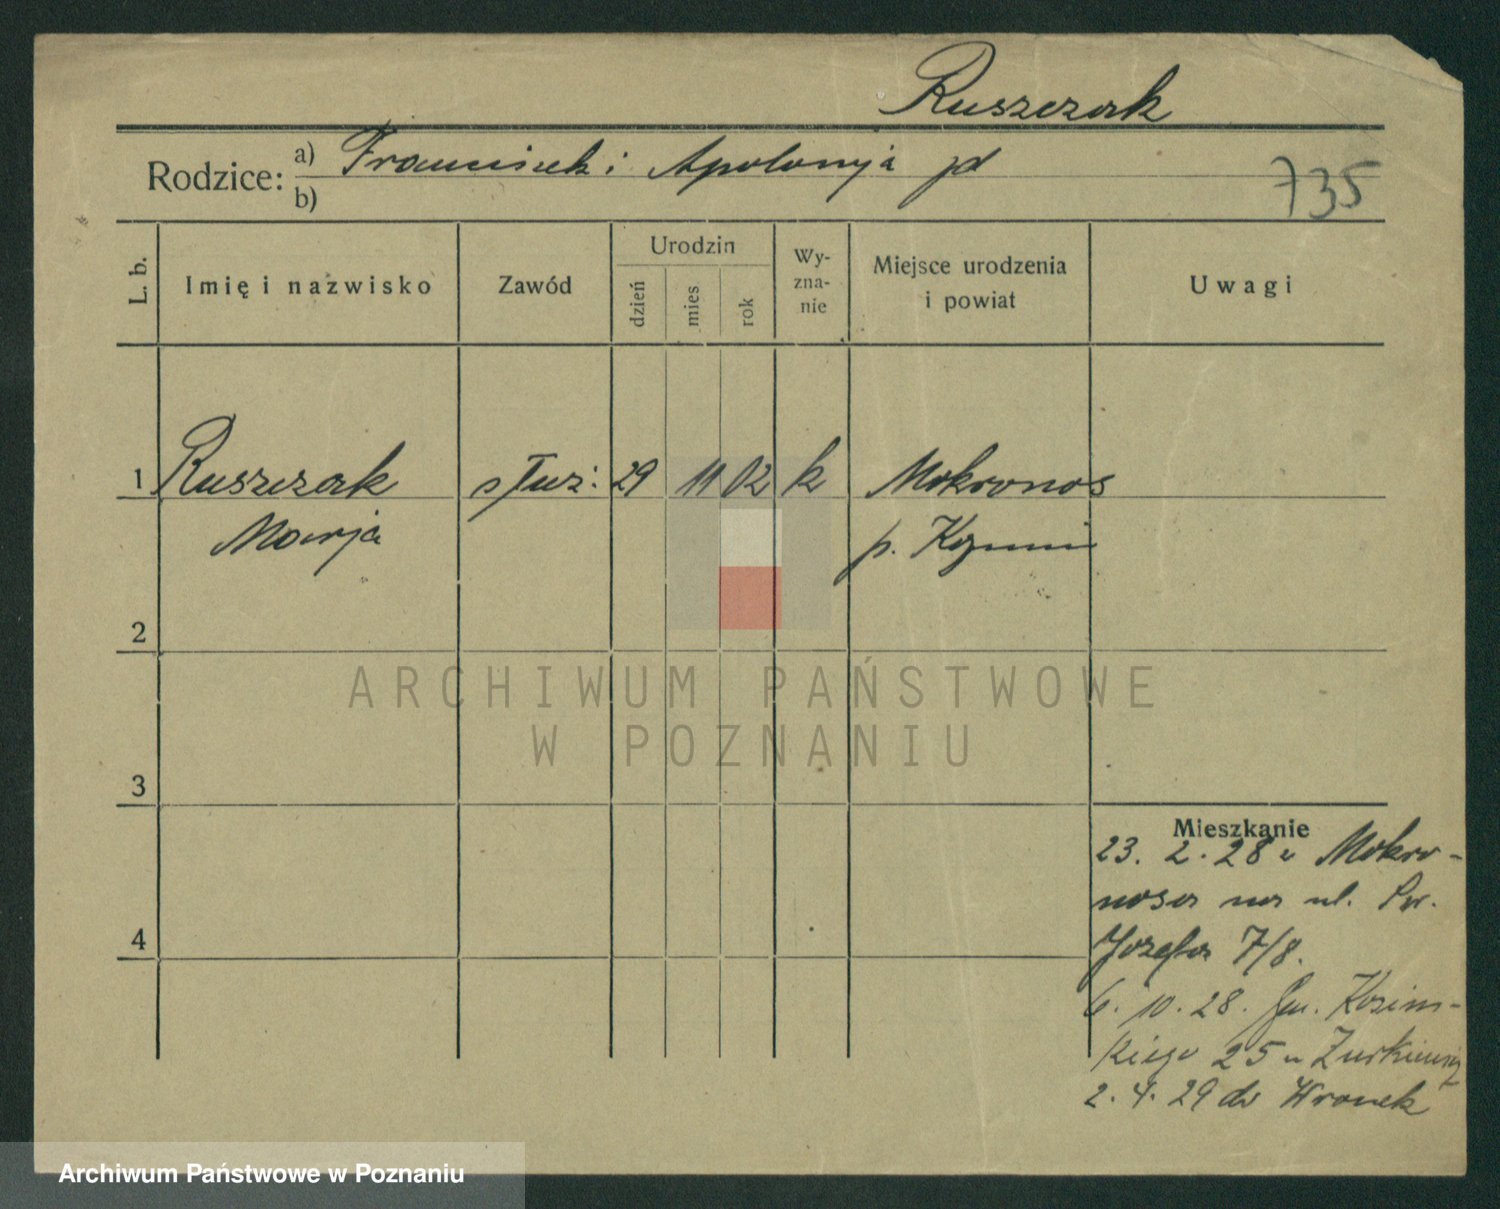 Ruszczak
Rodzice: a) Franciszek i Apolonja
b)
735
L. b.
Imię i nazwisko
Zawód
Urodzin
dzień
mies
rok
Wy-
zna-
nie
Miejsce urodzenia
i powiat
Uwagi
1 Ruszczak służ: 29 11 02 k Mokronos
Marja p. Koźmin
2
3
4
Mieszkanie
23. 2. 28 z Mokro-
nosa na ul. Św.
Józefa 7/8.
6. 10. 28. Koźmiń-
kiego 25 u
2. 4. 29 do Wronek
ARCHIWUM PAŃSTWOWE
W POZNANIU
Archiwum Państwowe w Poznaniu